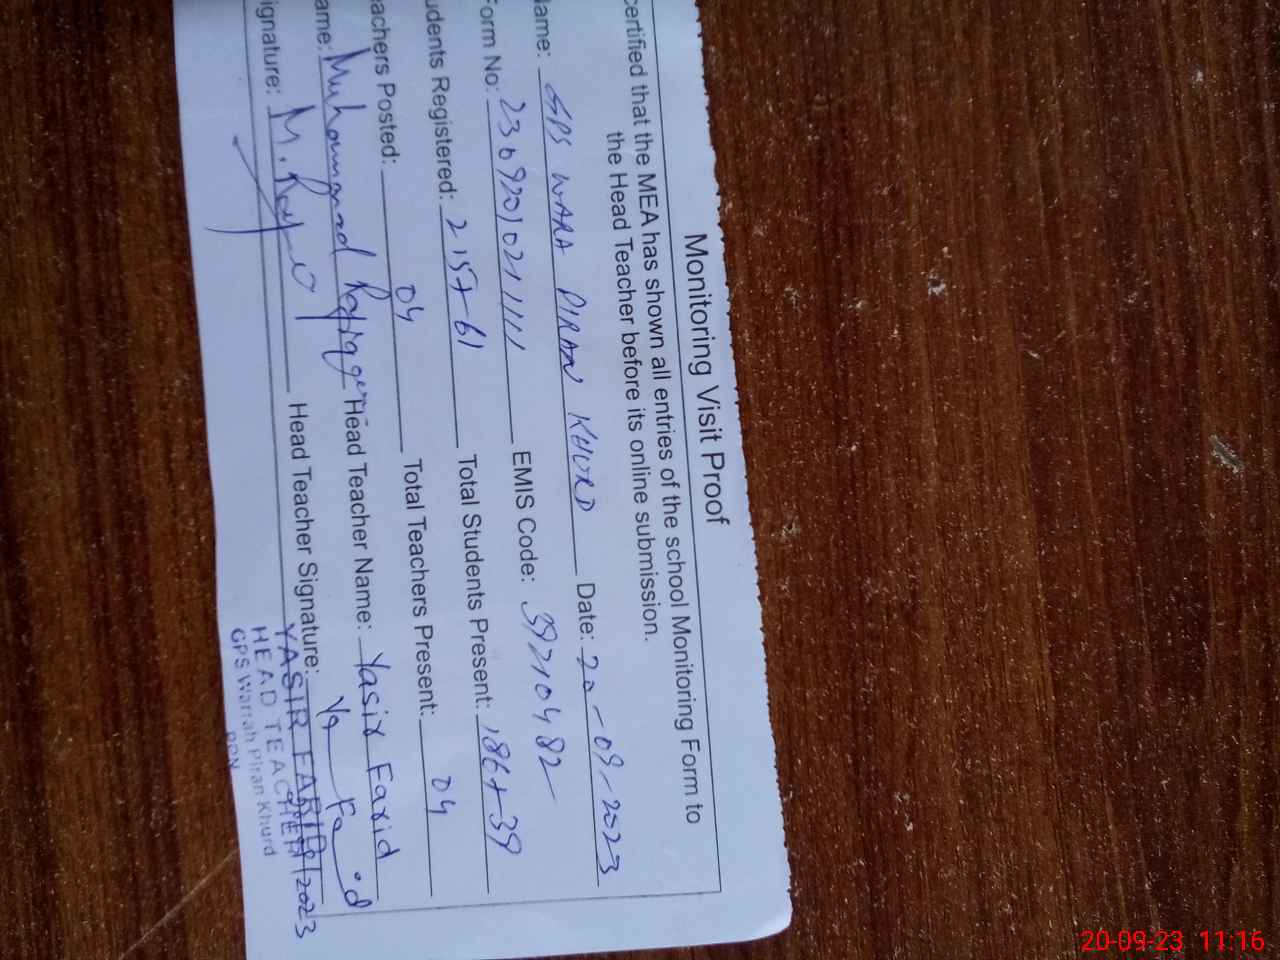 Monitoring Visit Proof
certified that the MEA has shown all entries of the school Monitoring Form to
the Head Teacher before its online submission.
Name: GPS WARA PIRAN KHURD Date: 20-09-2023
Form No: 2309201021111 EMIS Code: 39210482
udents Registered: 215+61 Total Students Present: 186+39
achers Posted: 04 Total Teachers Present: 04
ame: Muhammad Rafique Head Teacher Name: Yasir Farid
ignature: Head Teacher Signature:
YASIR FARID
HEAD TEACHER
GPS Warrah Piran Khurd
20-09-23 11:16